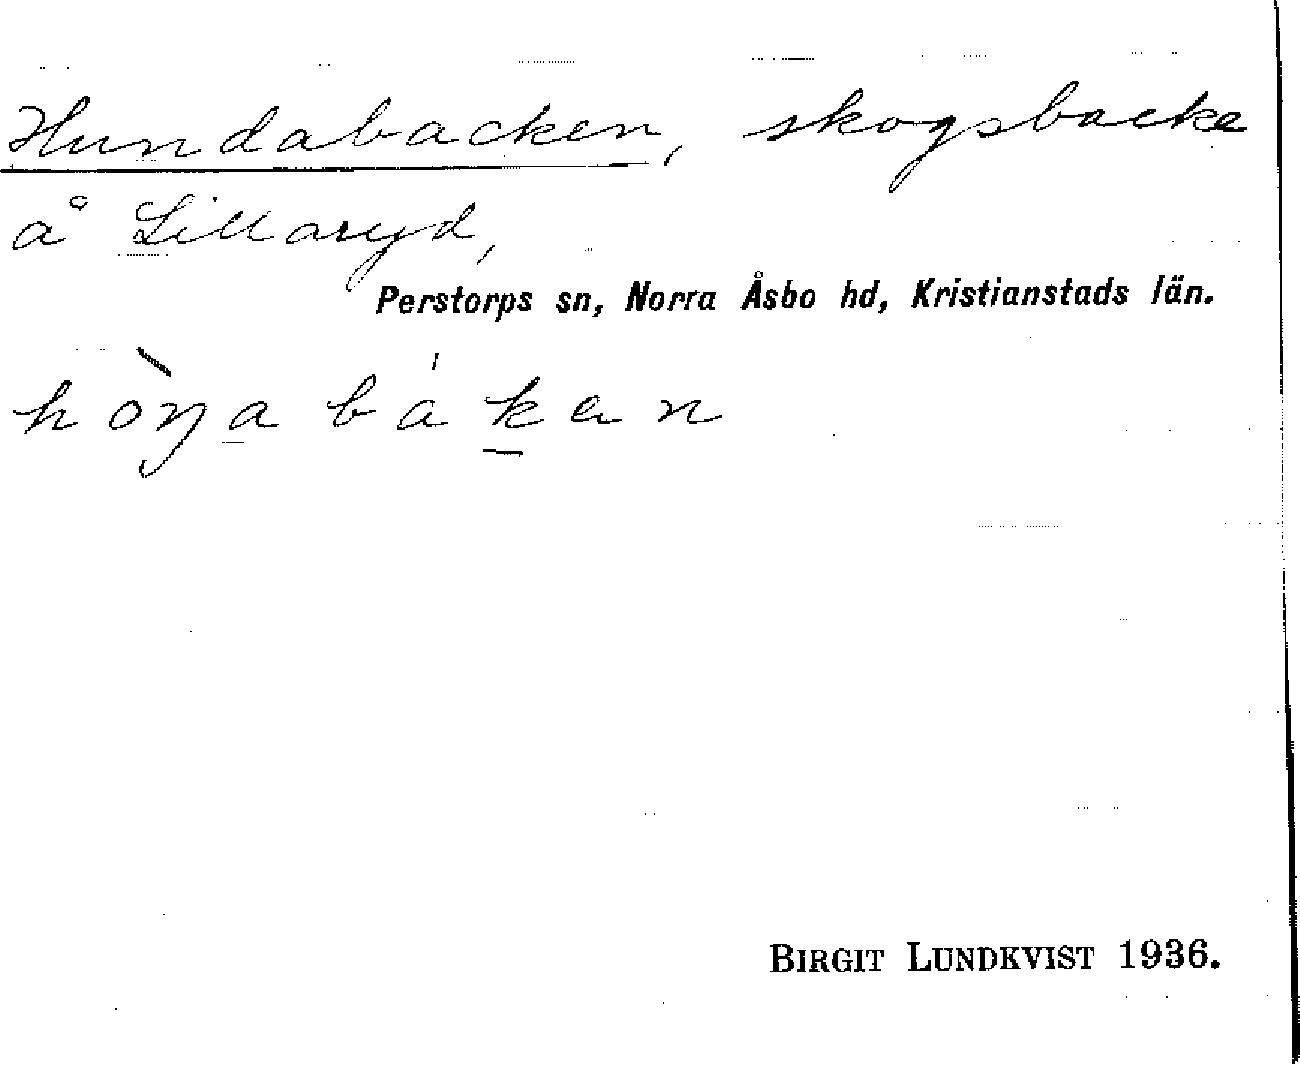 Hundabacken, skogsbacke
å Lillaryd,
Perstorps sn, Norra Åsbo hd, Kristianstads län.
hòŋa bákan
BIRGIT LUNDKVIST 1936.